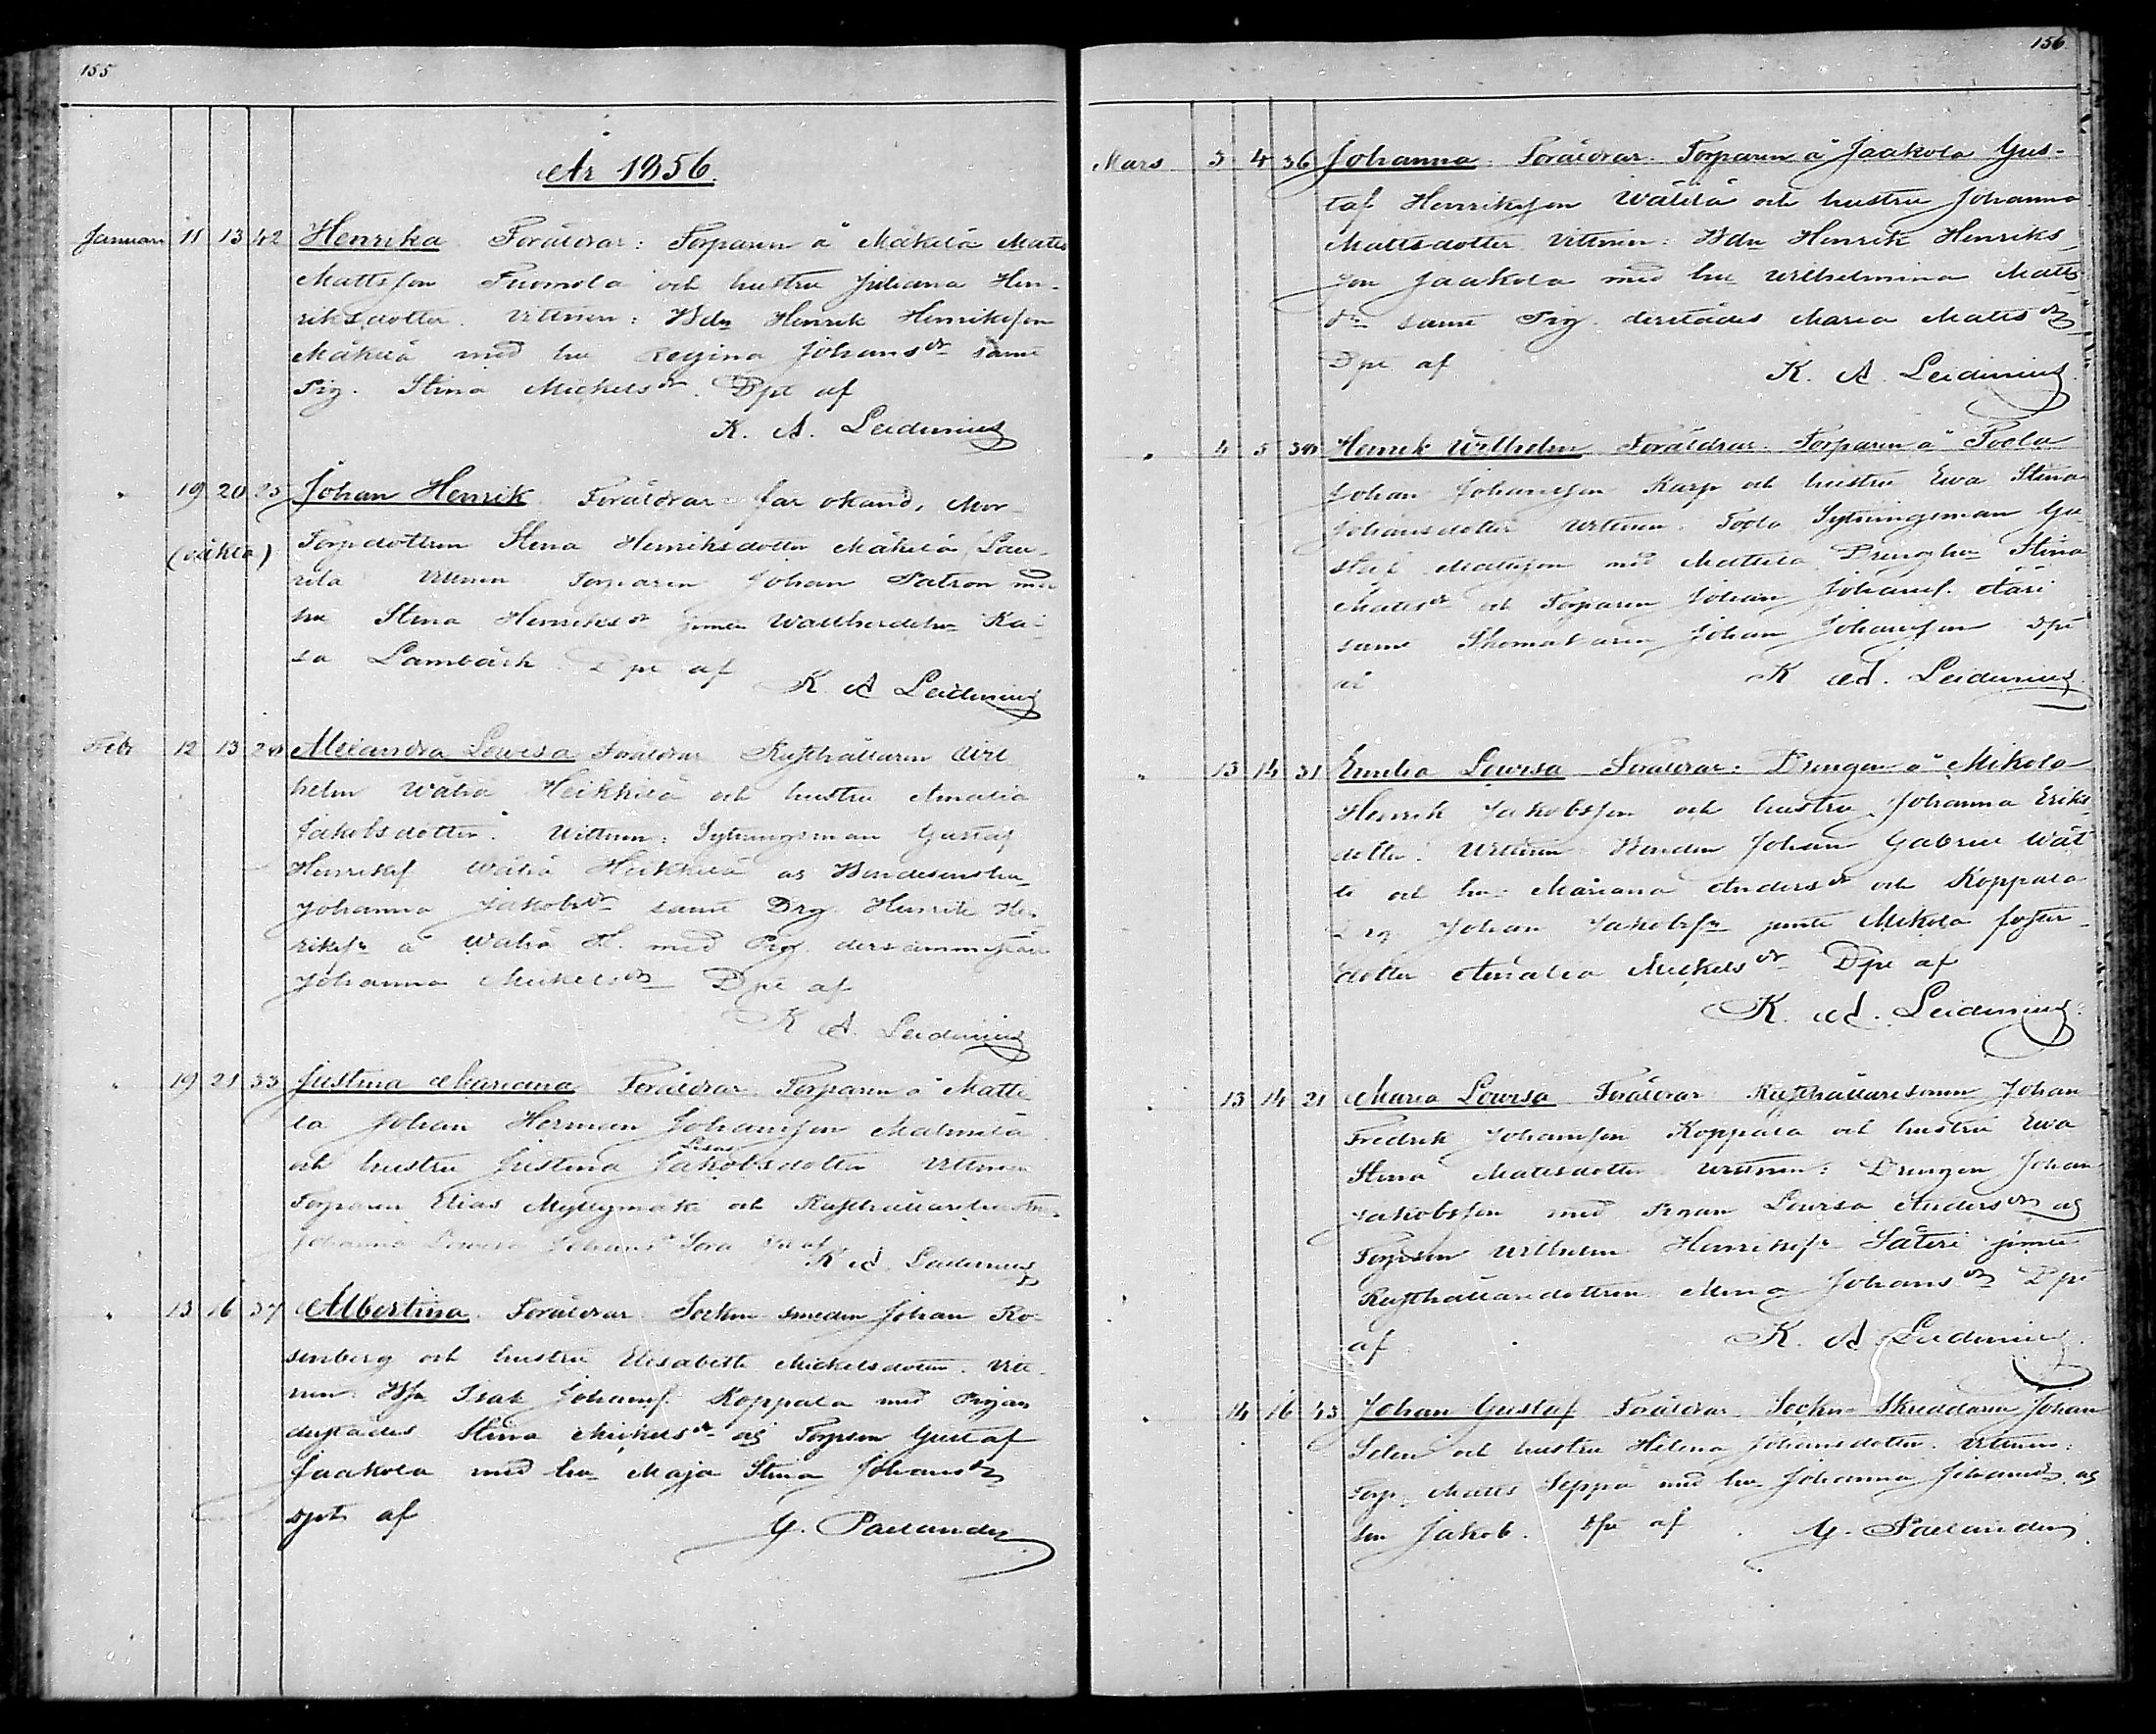 155
År 1856.
Januari 11 13 42 Henrika Föräldrar: Torparen å Mäkelä Matts
Mattsson Tuomola och hustru Juliana Hen-
riksdotter. Vittnen: Bdn Henrik Henriksson
Mäkelä med hu Regina Johansdr samt
Pig. Stina Mickelsdr. Dpt af
K. A. Leidenius
" 19 20 25 Johan Henrik Föräldrar far okänd, Mor
(oäkta) Torpdottren Stina Henriksdotter Mäkelä Lau-
rila Vittnen Torparen Johan Patron med
hu Stina Henriksdr jemte Kai-
sa Lambäck Dpt af
K A Leidenius
Febr 12 13 28 Alexandra Lowisa Föräldrar Rusthållaren Wil
helm Wähä Heikkilä och hustru Amalia
Jakobsdotter. Vittnen: Sytningsman Gustaf
Henriksf Wähä Heikkilä och Bondesonshu
Johanna Jakobsdr samt Drg. Henrik Hen-
riksfn å Wähä H. med Pig. dersammastädes
Johanna Mickelsdr Dpt af
K A. Leidenius
" 19 21 33 Justina Mariana Föräldrar Torparen å Matti
la Johan Herman Johansson Malmila
och hustru Justina Jakobsdotter Vittnen
Torparen Elias Myllymäki och Rusthållarehustrun
Johanna Lowisa Johansdr Sora Dpt af
K A. Leidenius
" 13 16 37 Albertina Föräldrar Sockne smeden Johan Ro-
senberg och hustru Elisabeth Mickelsdotter. Vitt-
nen: Isak Johansf. Koppala med Pigan
derstädes Stina Mickelsdr och Torpson Gustaf
Jaakola med hu Maja Stina Johansdr
dpt af
G. Paelander
156
Mars 3 4 36 Johanna. Föräldrar. Torparen å Jaakola Gus-
taf Henriksson Wälilä och hustru Johanna
Mattsdotter Vittnen: Bdn Henrik Henriks-
son Jaakola med hu Wilhelmina Matts
dr samt Pig. derstädes Maria Mattsdr
Dpt af
K. A. Leidenius.
" 4 5 38 Henrik Wilhelm Föräldrar. Torparen å Toola
Johan Johansson Karp och hustru Ewa Stina
Johansdotter Vittnen Toola Sytningsman Gu-
staf Mattsson med Mattila Dränghu Stina
Mattsdr och Torparen Johan Johansf. Ääri
samt Skomakaren Johan Johansson Dpt
af
K A. Leidenius.
" 13 14 31 Emilia Lowisa Föräldrar: Drengen å Mikola
Henrik Jakobsson och hustru Johanna Eriks
dotter. Vittnen Bonden Johan Gabriel
och hu Mariana Andersdr och Koppala
Drg Johan Jakobsfn jemte Mikola foster-
dotter Amalia Mickelsdr Dpt af
K. A. Leidenius.
" 13 14 21 Maria Lowisa Föräldrar Rusthållaresonen Johan
Fredrik Johansson Koppala och hustru Ewa
Stina Mattsdotter Vittnen: Drengen Johan
Jakobsson med Pigan Lowisa Andersdr och
Torpson Wilhelm Henriksfn Säteri jemte
Rusthållaredottren Mina Johansdr Dpt
af
K. A Leidenius.
" 14 16 43 Johan Gustaf Föräldrar Sockne Skräddaren Johan
Selen och hustru Helena Johansdotter. Vittnen:
Torp. Matts Seppä med hu Johanna Johansdr och
son Jakob. Dpt af
G. Paelander.